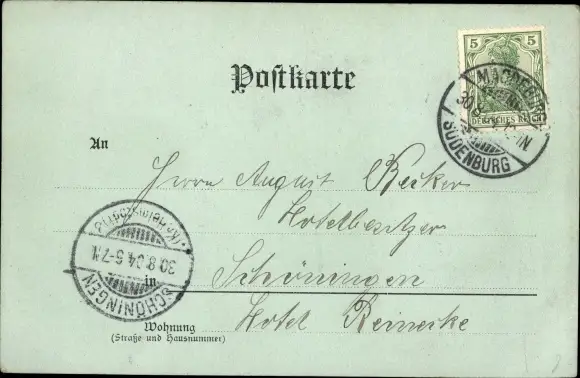 5 5
DEUTSCHES REICH
MAGDEBURG
SUDENBURG
Postkarte
An
Herrn August Becker
Hotelbesitzer
in Schöningen
Hotel Reinecke
Wohnung
(Straße und Hausnummer)
30.8.04.5-7N.
SCHÖNINGEN